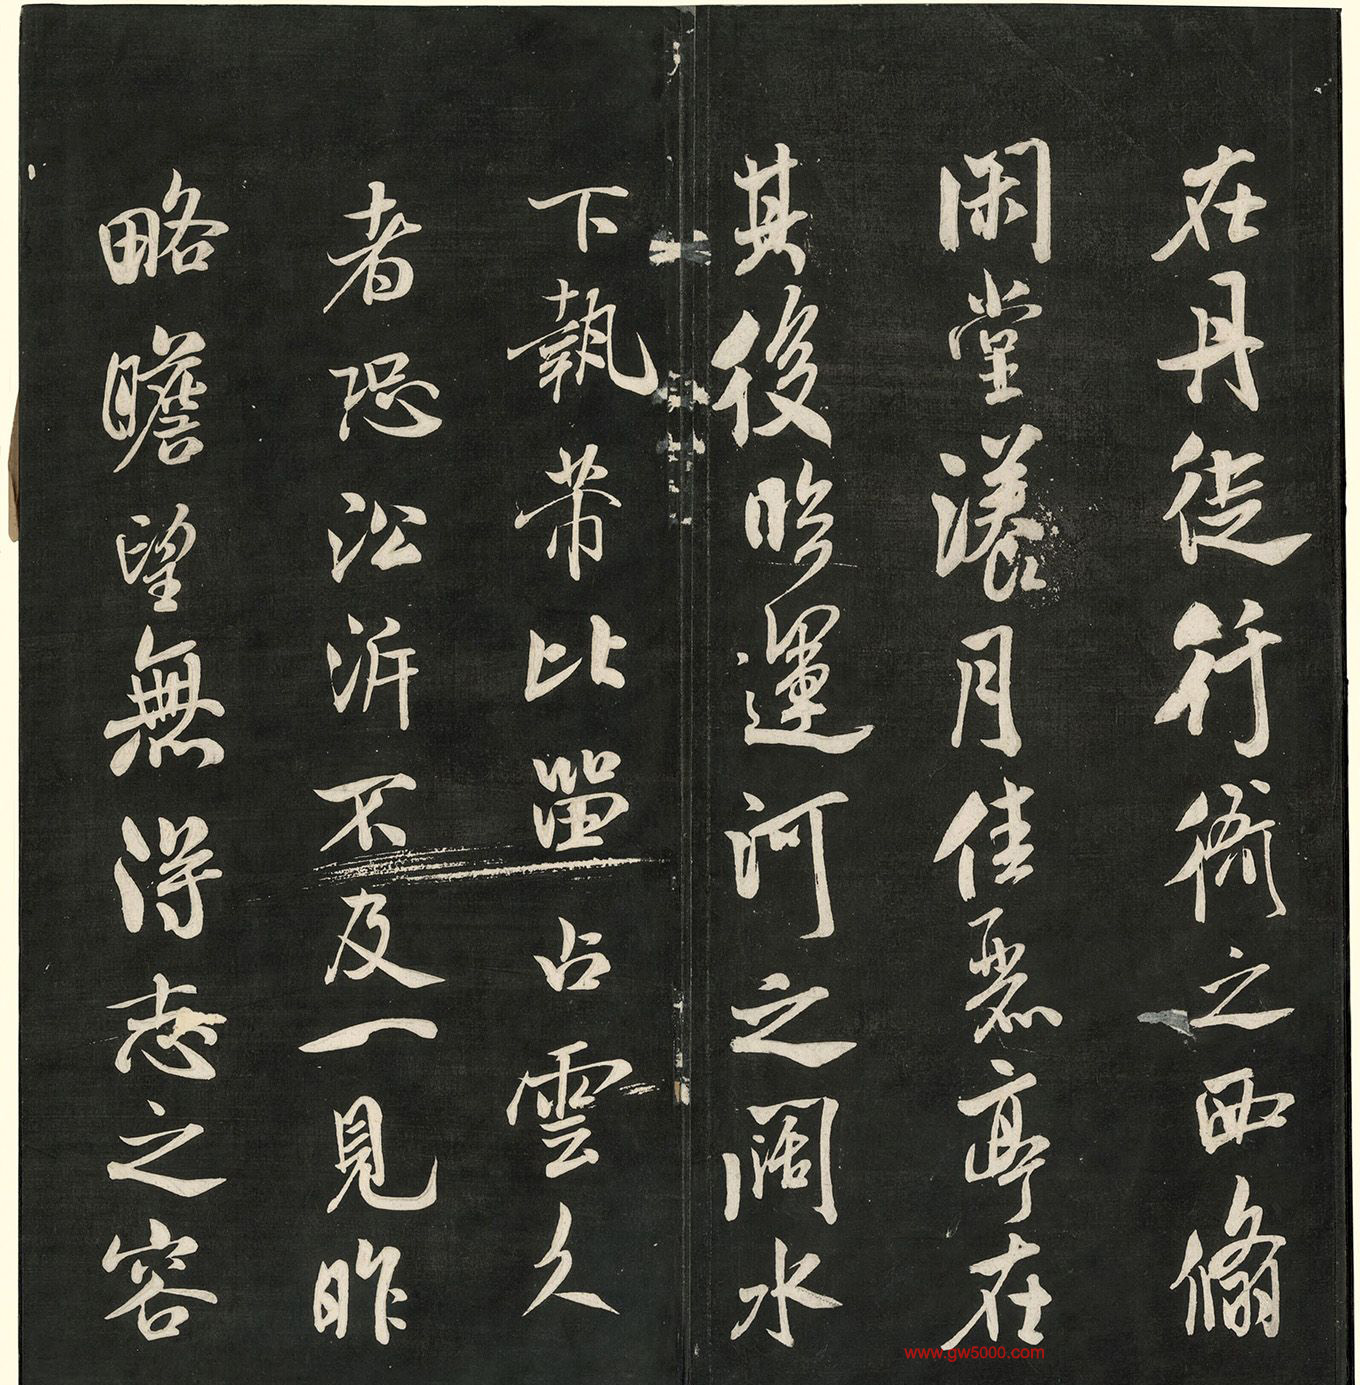 在丹徒行衙之西翛
閑堂漾月佳麗亭在
其後昣運河之闊水
下執帶比晋占雲久
者恐沿泝不及一見昨
略瞻望無得志之容
www.gw5000.com